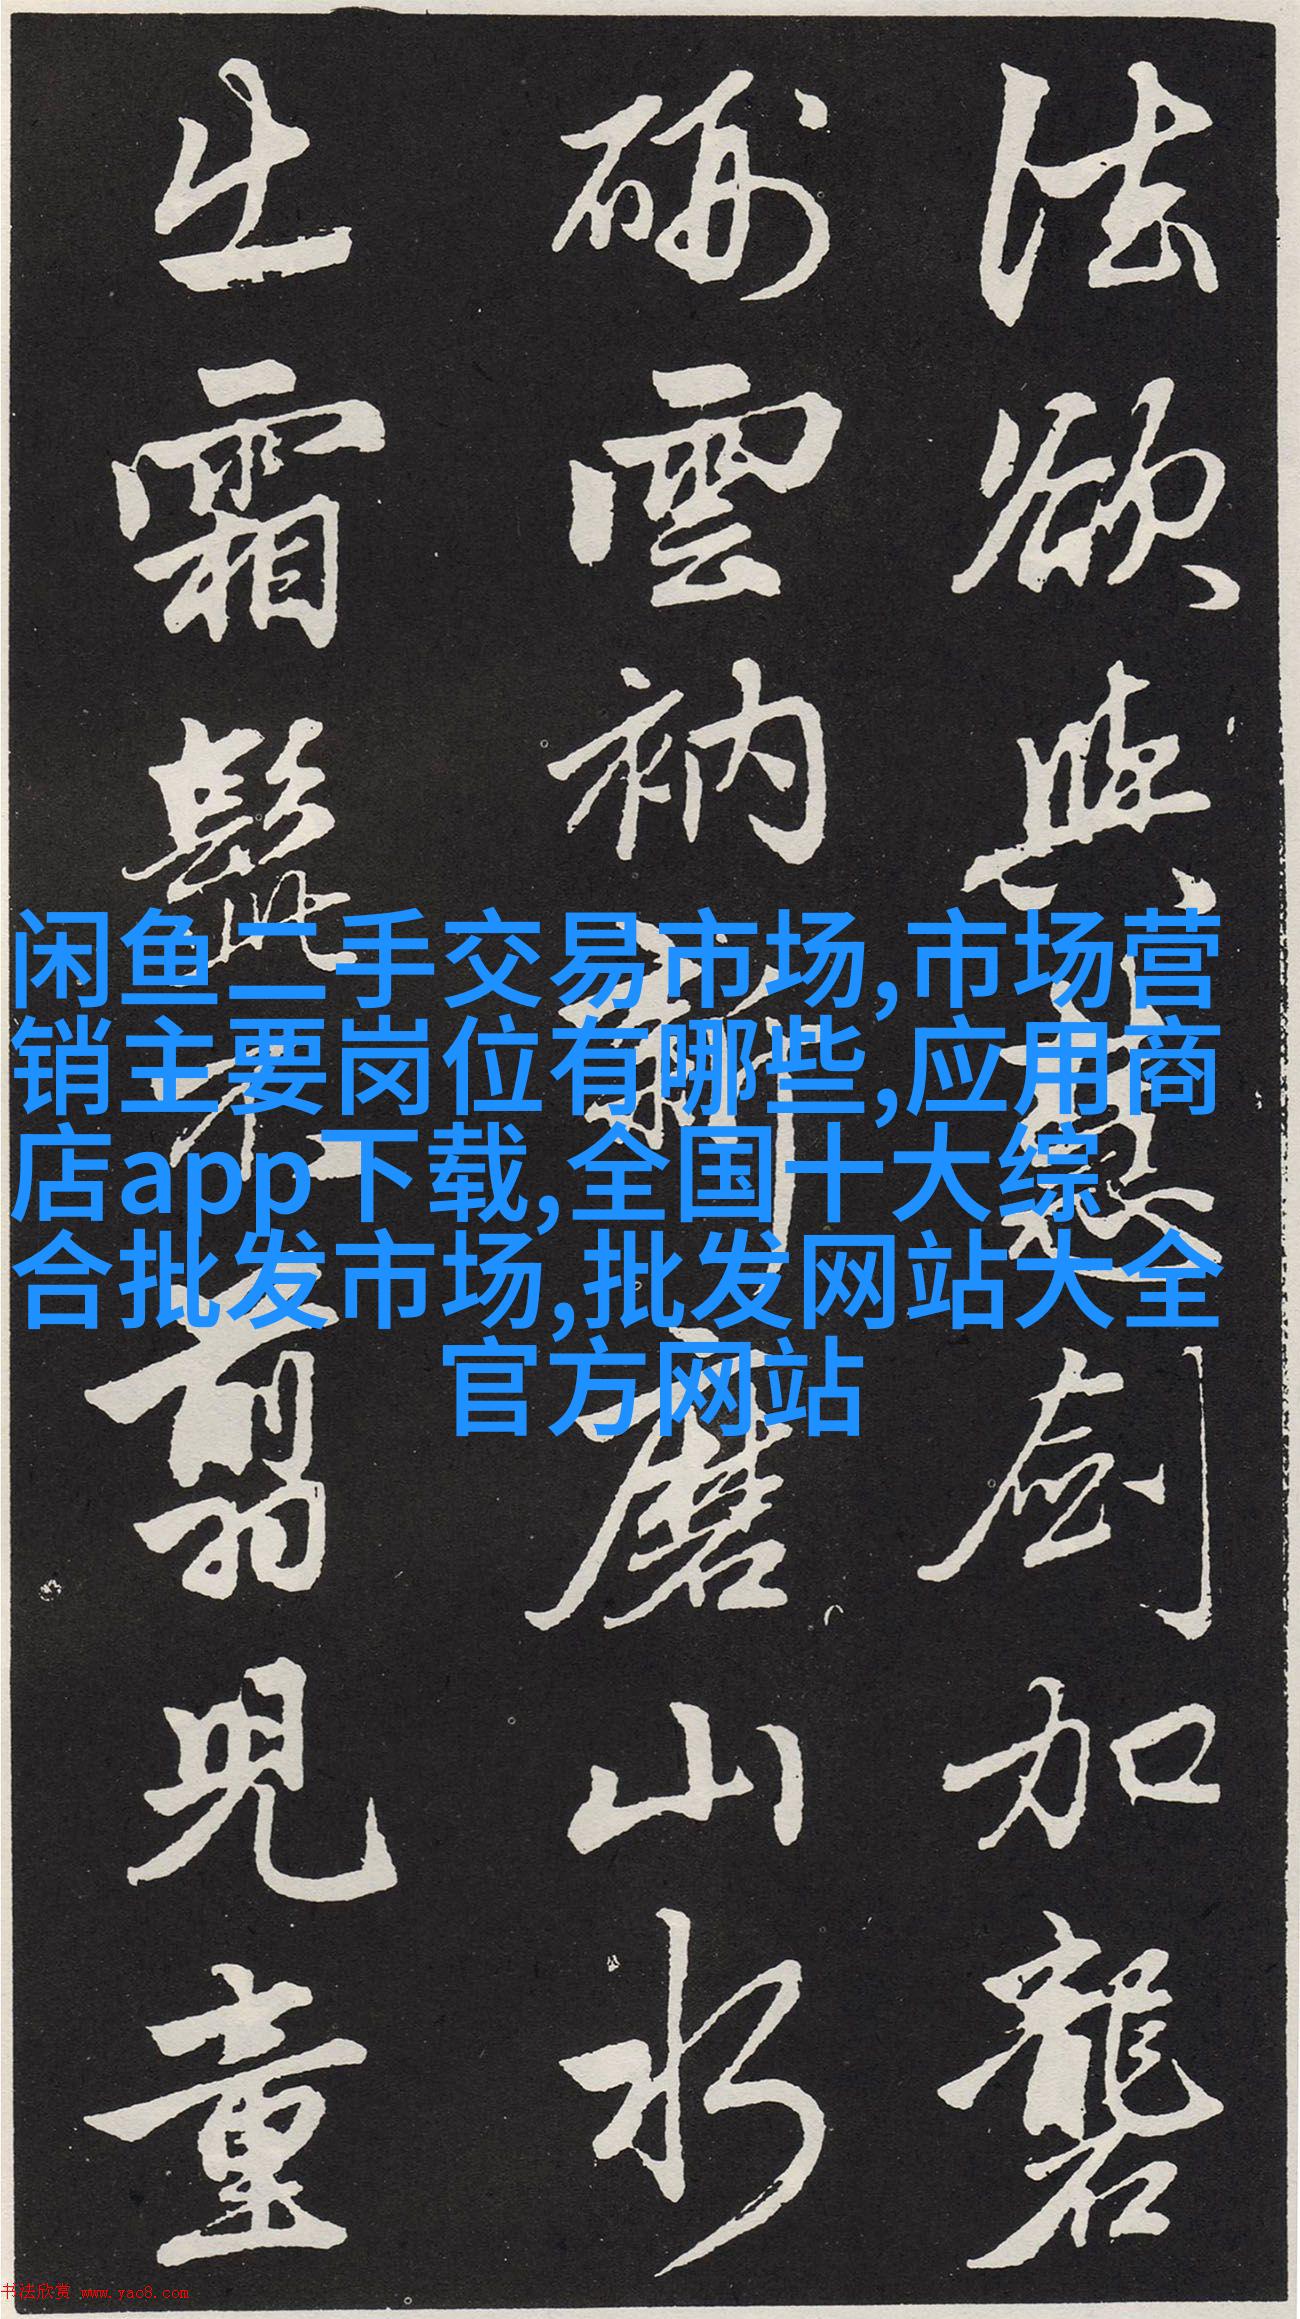 法欲與慧劍加礱
硎雲衲新磨山水
出霜髭不翦兒童
闲鱼二手交易市场,市场营
销主要岗位有哪些,应用商
店app下载,全国十大综
合批发市场,批发网站大全
官方网站
书法欣赏 www.yac8.com